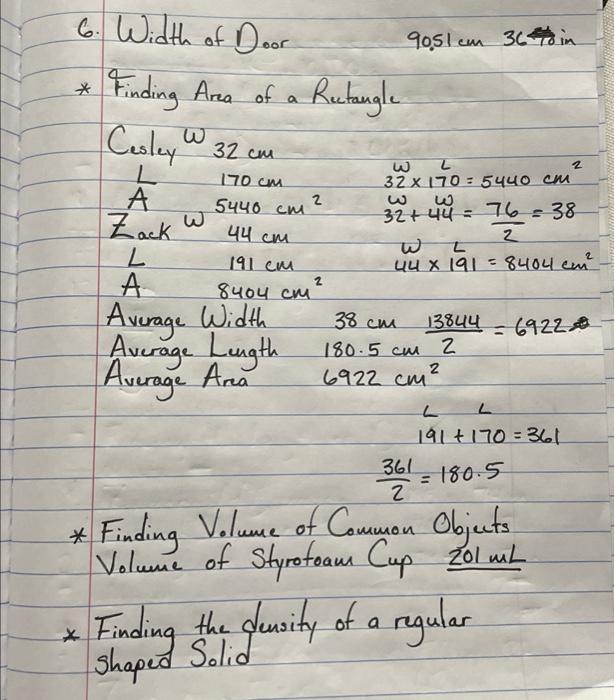 6. Width of Door 90.51 cm 36 in
* Finding Area of a Rectangle
Cesley W 32 cm
L 170 cm W L 32 x 170 = 5440 cm²
A 5440 cm² W W 32 + 44 = 76/2 = 38
Zack W 44 cm
L 191 cm W L 44 x 191 = 8404 cm²
A 8404 cm²
Average Width 38 cm 13844/2 = 6922
Average Length 180.5 cm
Average Area 6922 cm²
L L
191 + 170 = 361
361/2 = 180.5
* Finding Volume of Common Objects
Volume of Styrofoam Cup 201 mL
* Finding the density of a regular
shaped Solid